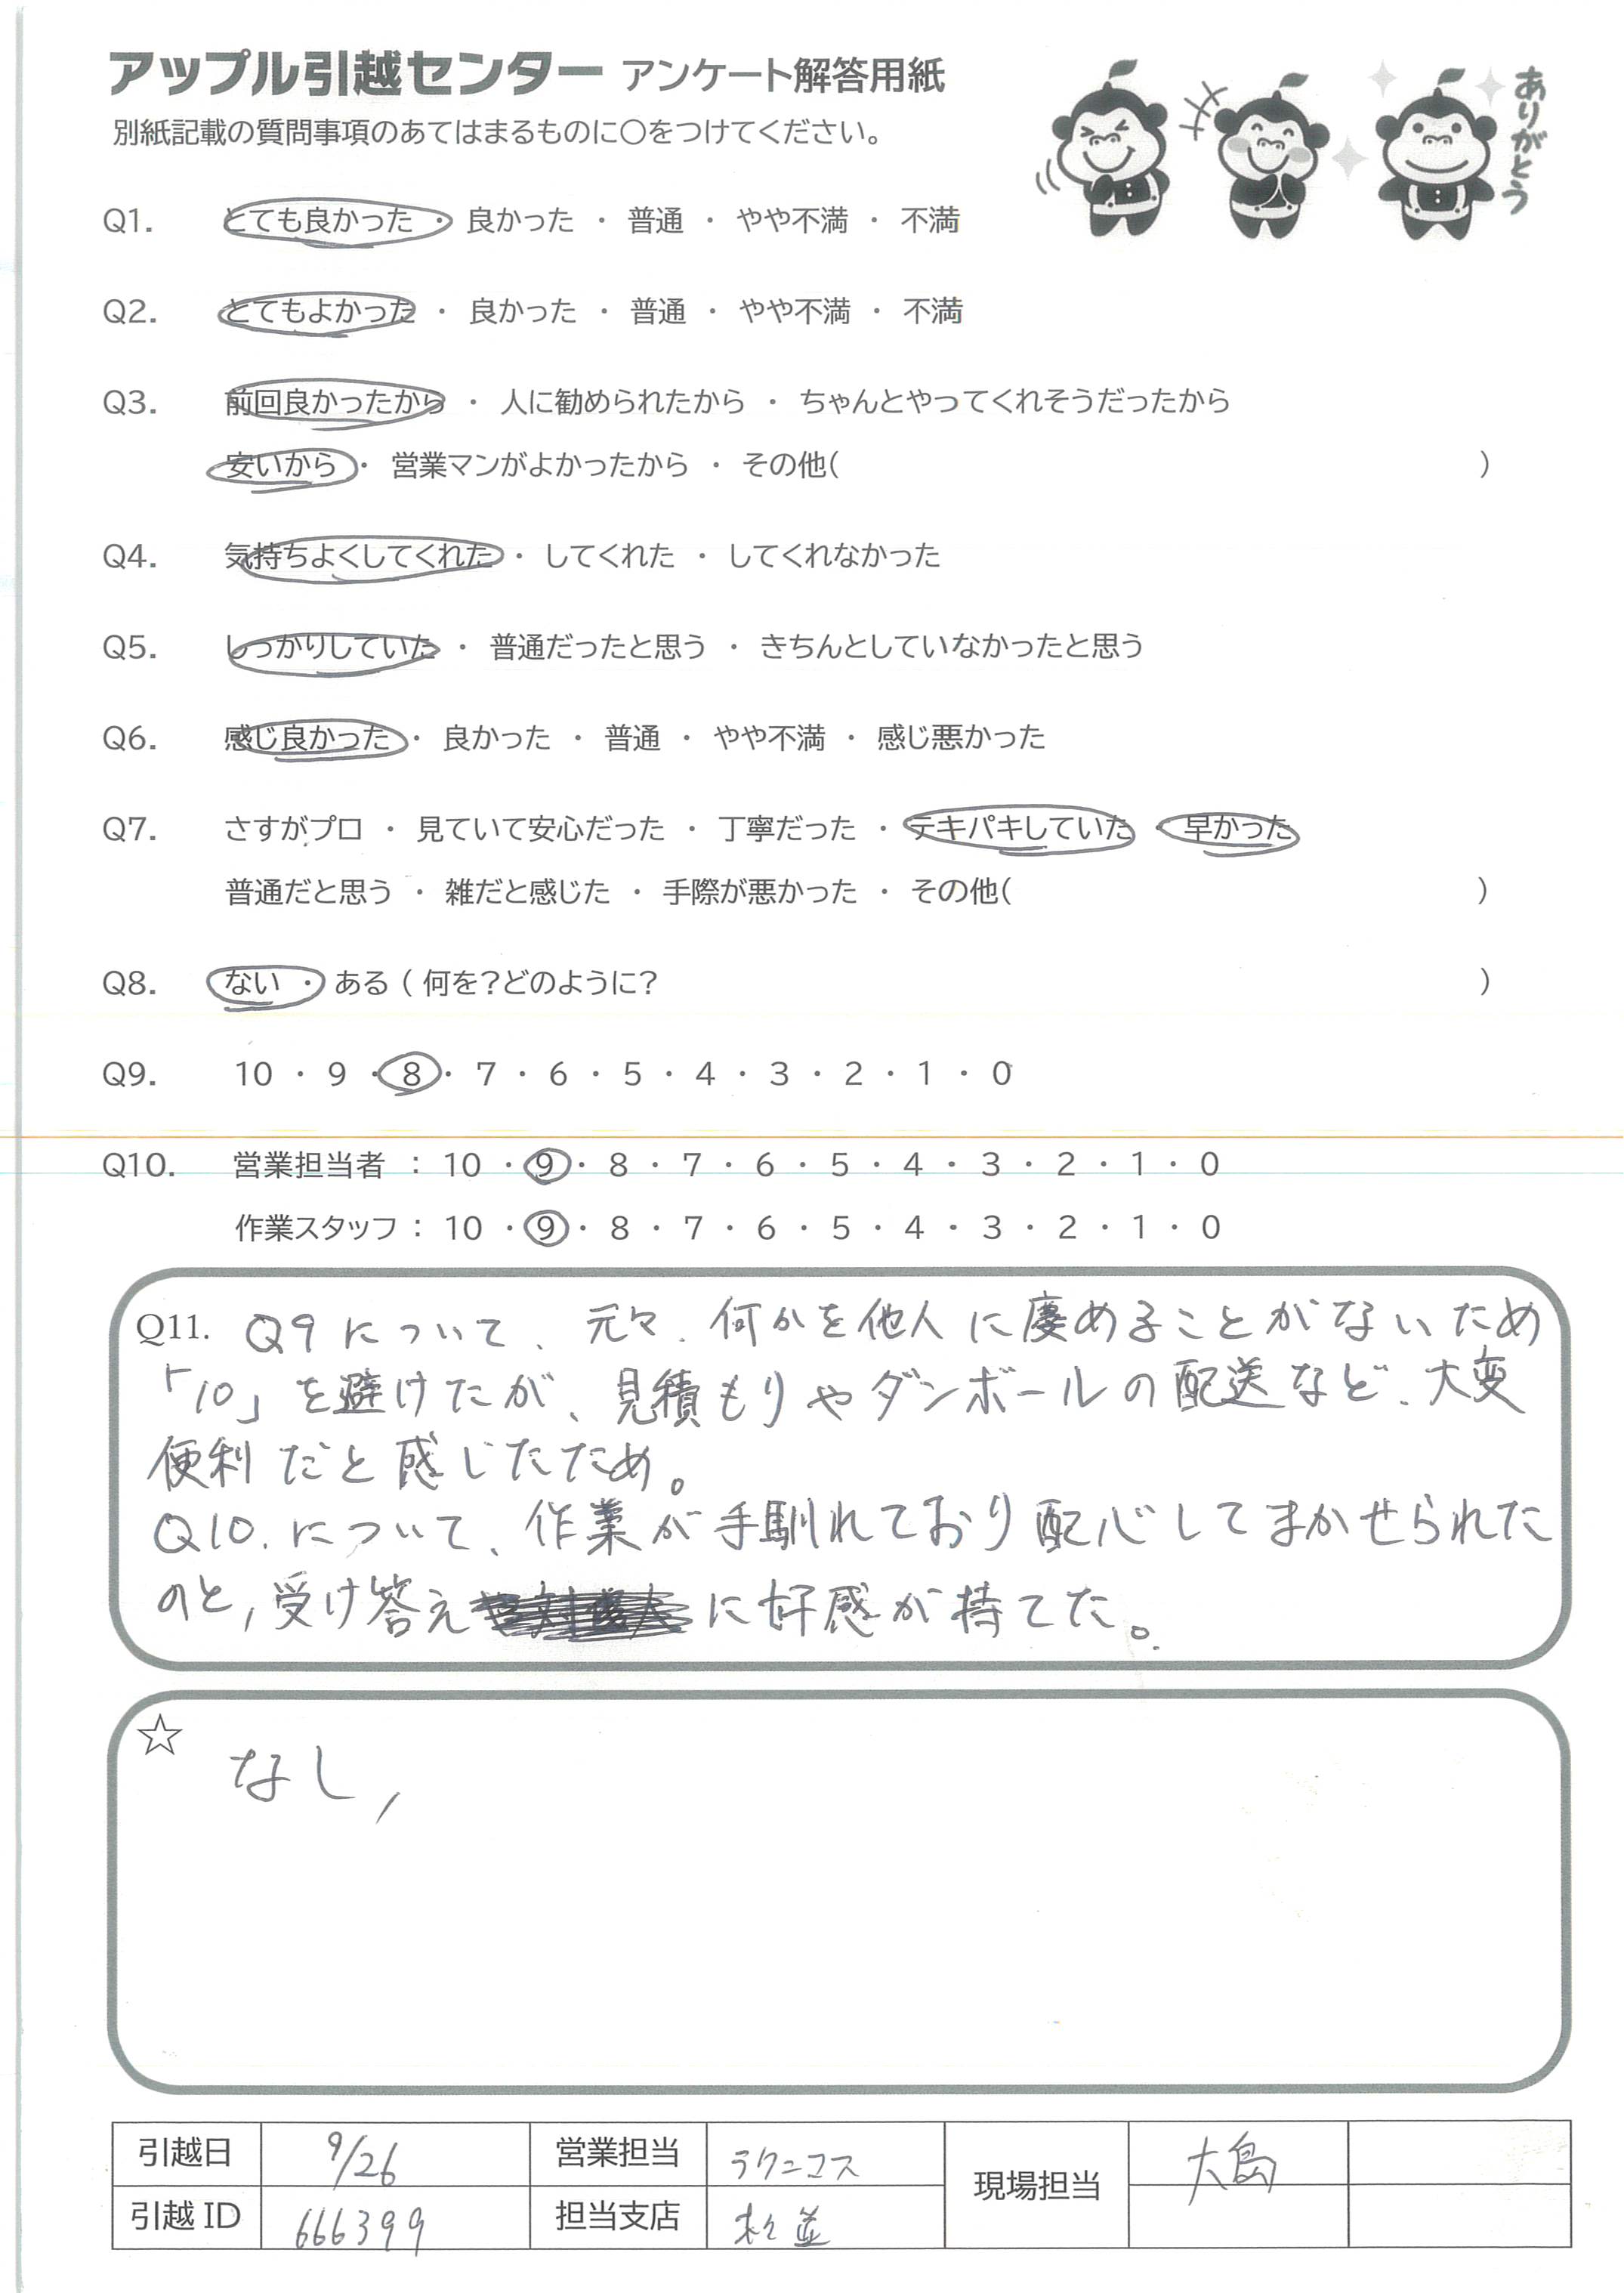 アップル引越センター アンケート解答用紙
別紙記載の質問事項のあてはまるものに〇をつけてください。
ありがとう
Q1. とても良かった ・ 良かった ・ 普通 ・ やや不満 ・ 不満
Q2. とてもよかった ・ 良かった ・ 普通 ・ やや不満 ・ 不満
Q3. 前回良かったから ・ 人に勧められたから ・ ちゃんとやってくれそうだったから
安いから ・ 営業マンがよかったから ・ その他( )
Q4. 気持ちよくしてくれた ・ してくれた ・ してくれなかった
Q5. しっかりしていた ・ 普通だったと思う ・ きちんとしていなかったと思う
Q6. 感じ良かった ・ 良かった ・ 普通 ・ やや不満 ・ 感じ悪かった
Q7. さすがプロ ・ 見ていて安心だった ・ 丁寧だった ・ テキパキしていた ・ 早かった
普通だと思う ・ 雑だと感じた ・ 手際が悪かった ・ その他( )
Q8. ない ・ ある ( 何を?どのように? )
Q9. 10 ・ 9 ・ 8 ・ 7 ・ 6 ・ 5 ・ 4 ・ 3 ・ 2 ・ 1 ・ 0
Q10. 営業担当者 : 10 ・ 9 ・ 8 ・ 7 ・ 6 ・ 5 ・ 4 ・ 3 ・ 2 ・ 1 ・ 0
作業スタッフ : 10 ・ 9 ・ 8 ・ 7 ・ 6 ・ 5 ・ 4 ・ 3 ・ 2 ・ 1 ・ 0
Q11. Q9について、元々、何かを他人に めることがないため
「10」を避けたが、見積もりやダンボールの配送など、大変
便利だと感じたため。
Q10.について、作業が手馴れており配心してまかせられた
のと,受け答えに好感が持てた。
☆ なし,
引越日 9/26 営業担当 ラクニコス 現場担当 大島
引越ID 666399 担当支店